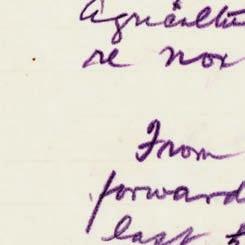 Agricultu
re nor
From
forward
last t